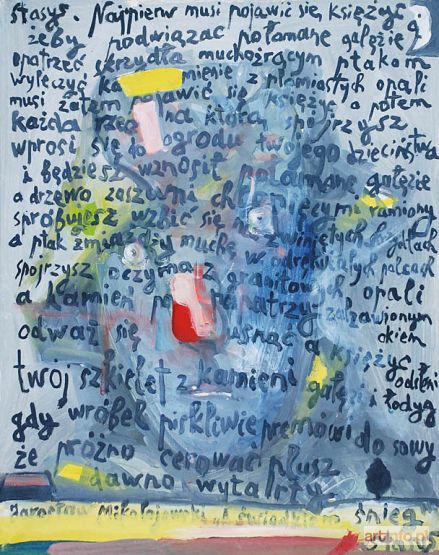 Stasys. Najpierw musi pojawić się księżyc
żeby podwiązać połamane gałęzie
opatrzeć skrzydła muchożrącym ptakom
wyleczyć kamienie z plamistych opali
musi zatem pojawić się księżyc a potem
każda rzecz na którą spojrzysz
wprosi się do ogrodu twojego dzieciństwa
i będziesz wznosił połamane gałęzie
a drzewo zaszumi ramiony
spróbujesz wzbić się na zwiniętych gałęziach
a ptak zmiażdży muchę w palcach
spojrzysz oczyma z granitowych opali
a kamień popatrzy załzawionym
okiem
odważ się usnąć a księżyc
odsłoni
twój szkielet z kamieni gałęzi i łodyg
gdy wróbel pirkliwie przemówi do sowy
że próżno cerować plusz
dawno wytarty.
Jarosław Mikołajewski "Świadkiem śnieg"
artinfo.pl